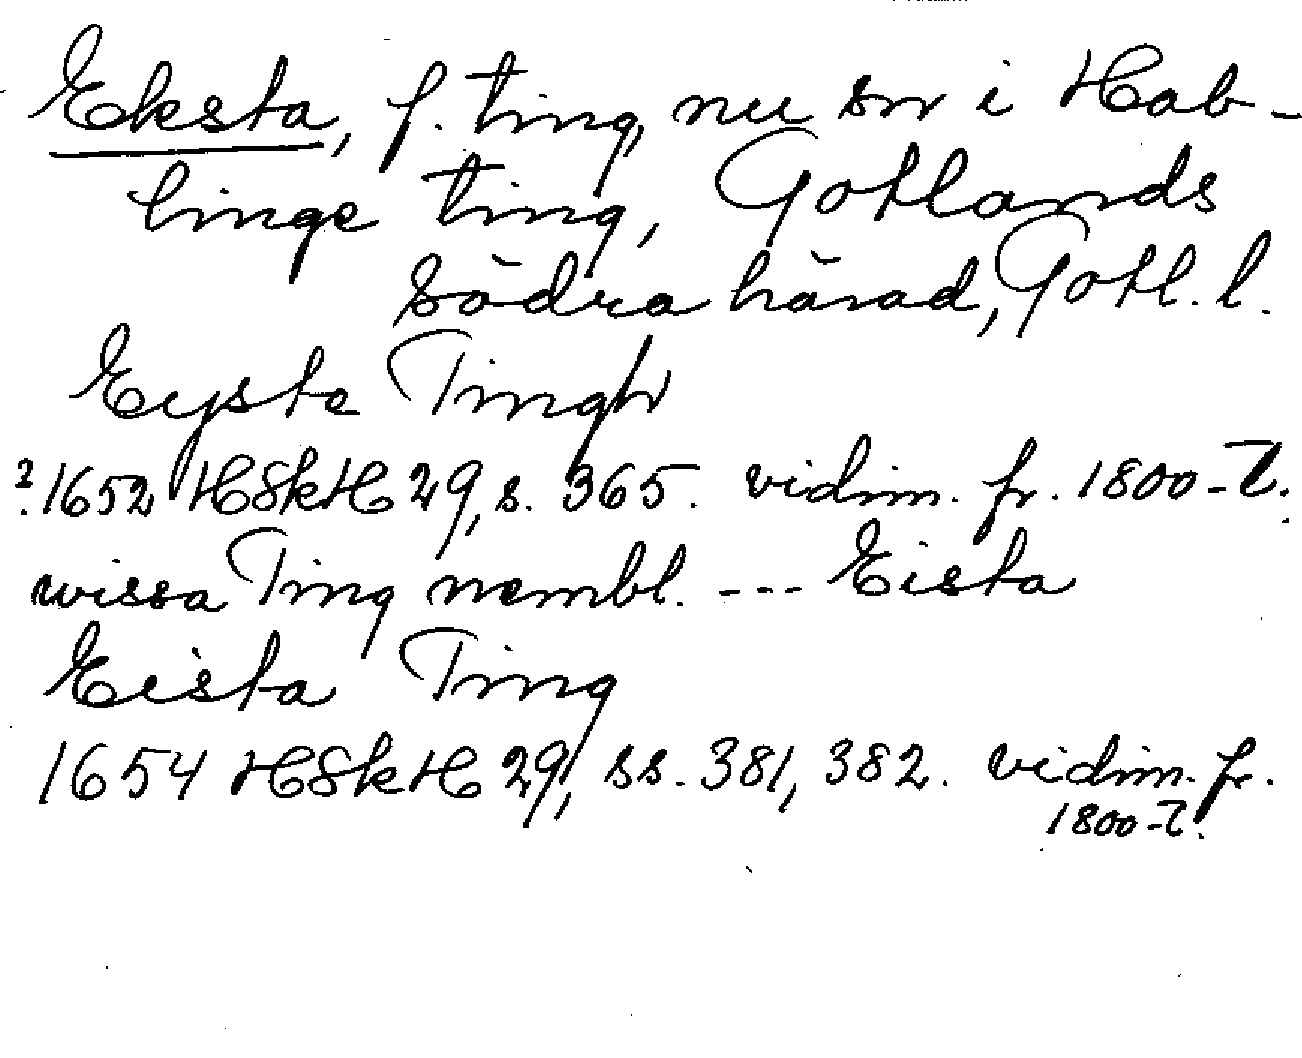 Eksta, f. ting, nu sn i Hab-
linge ting, Gotlands
södra härad, Gotl. l.
Eyste Tingh
?1652 HSkH 29, s. 365. vidim. fr. 1800-t.
wissa Ting nembl. --- Eista
Eista Ting
1654 HSkH 29, ss. 381, 382. vidim. fr.
1800-t.